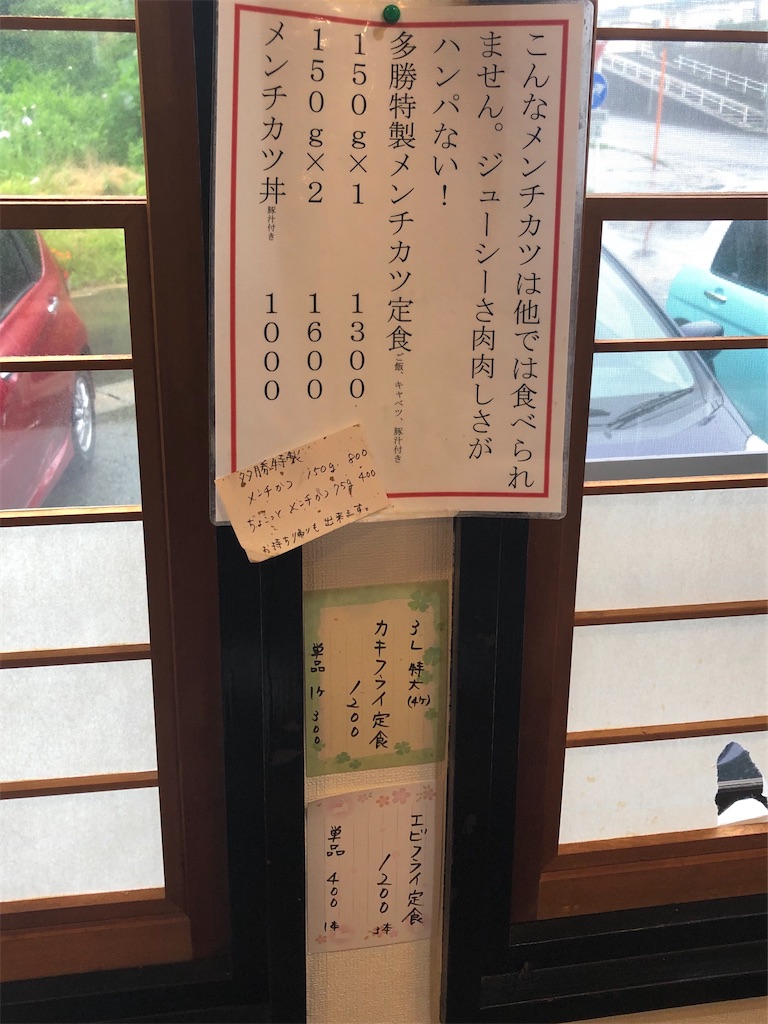 こんなメンチカツは他では食べられ
ません。ジューシーさ肉肉しさが
ハンパない！
多勝特製メンチカツ定食ご飯、キャベツ、豚汁付き
150g×1 1300
150g×2 1600
メンチカツ丼豚汁付き 1000
多勝特製
メンチかつ 150g 800
ちょこっとメンチかつ 75g 400
お持ち帰りも出来ます。
3L 特大(4ケ)
カキフライ定食
1200
単品 1ケ 300
エビフライ定食
1200 3本
単品 400 1本